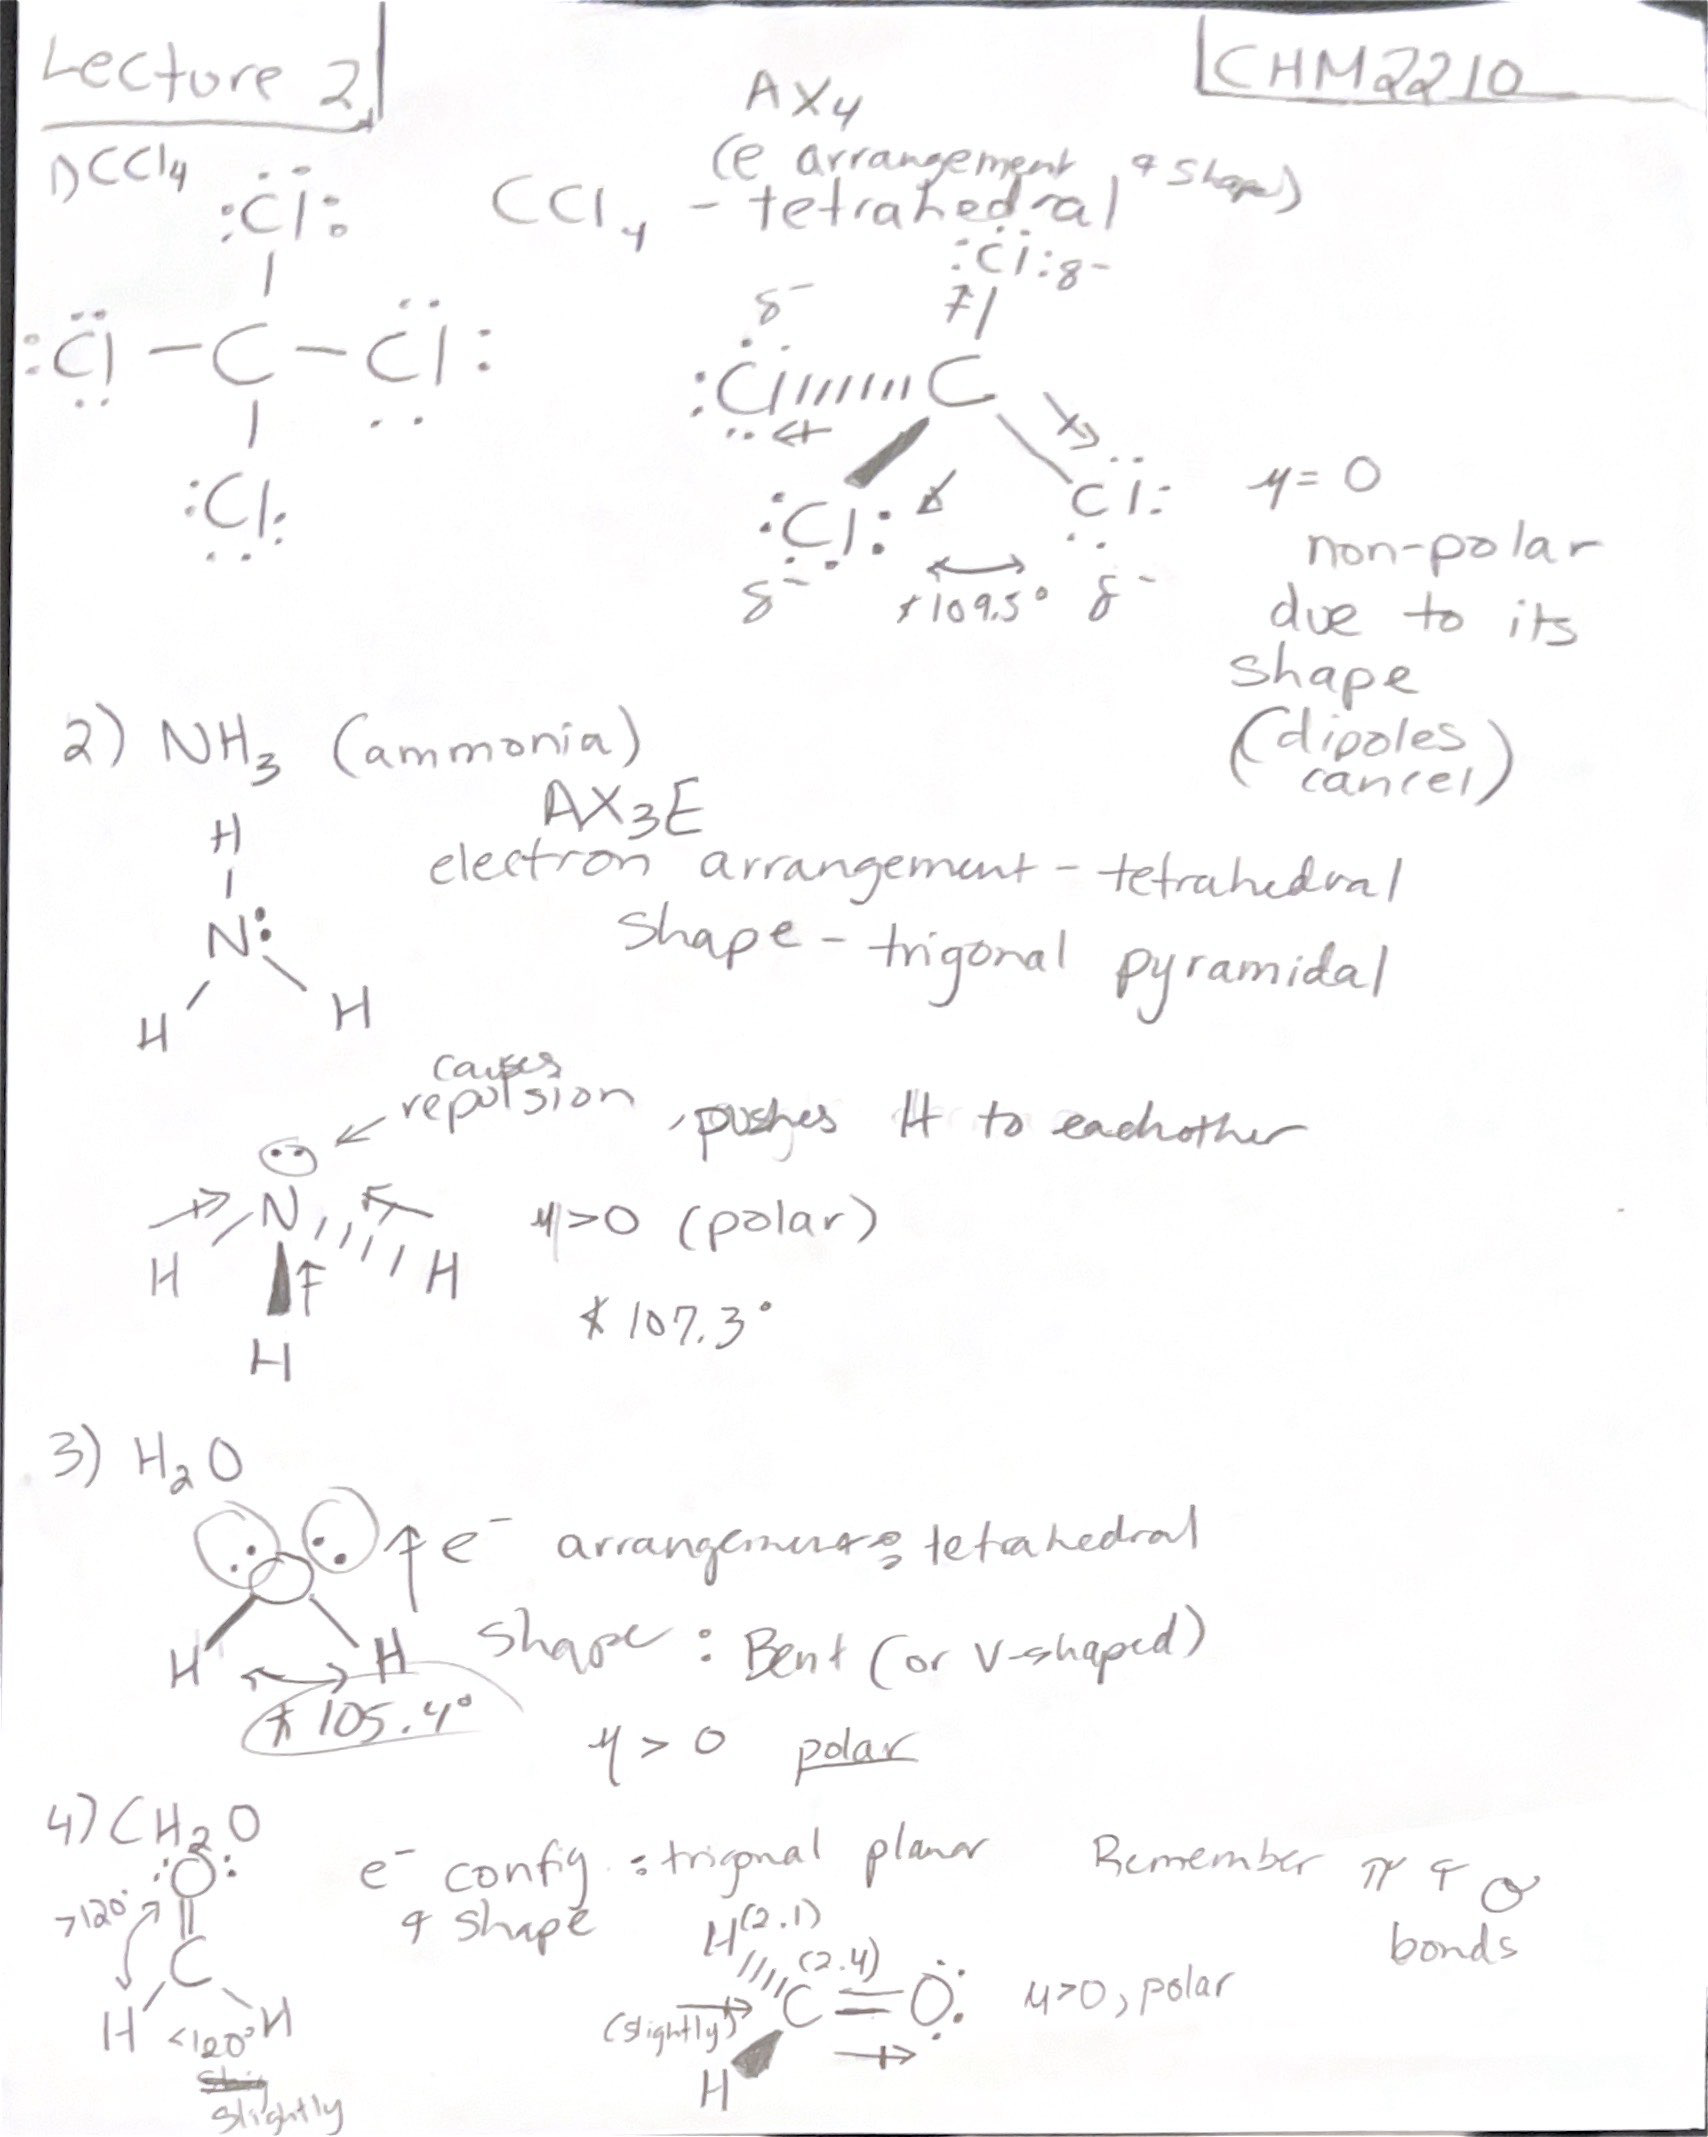 Lecture 2
CHM2210
1) CCl4
AX4
(e arrangement & shape)
CCl4 - tetrahedral
:Cl:
:Cl - C - Cl:
:Cl:
:Cl: δ-
δ-
:Cl C
:Cl: Cl:
δ- ∡109.5° δ-
μ = 0
non-polar
due to its
shape
(dipoles
cancel)
2) NH3 (ammonia)
AX3E
electron arrangement - tetrahedral
Shape - trigonal pyramidal
H
N:
H H
causes
repulsion, pushes H to eachother
N
H H
H
μ>0 (polar)
∡ 107.3°
3) H2O
e- arrangement: tetrahedral
H H
Shape: Bent (or V-shaped)
∡ 105.4°
μ > 0 polar
4) CH2O
:O:
>120°
C
H H
<120°
slightly
e- config : trigonal planar
& shape
Remember π & σ
bonds
H (2.1)
(2.4)
C = O:
(slightly)
H
μ>0, polar